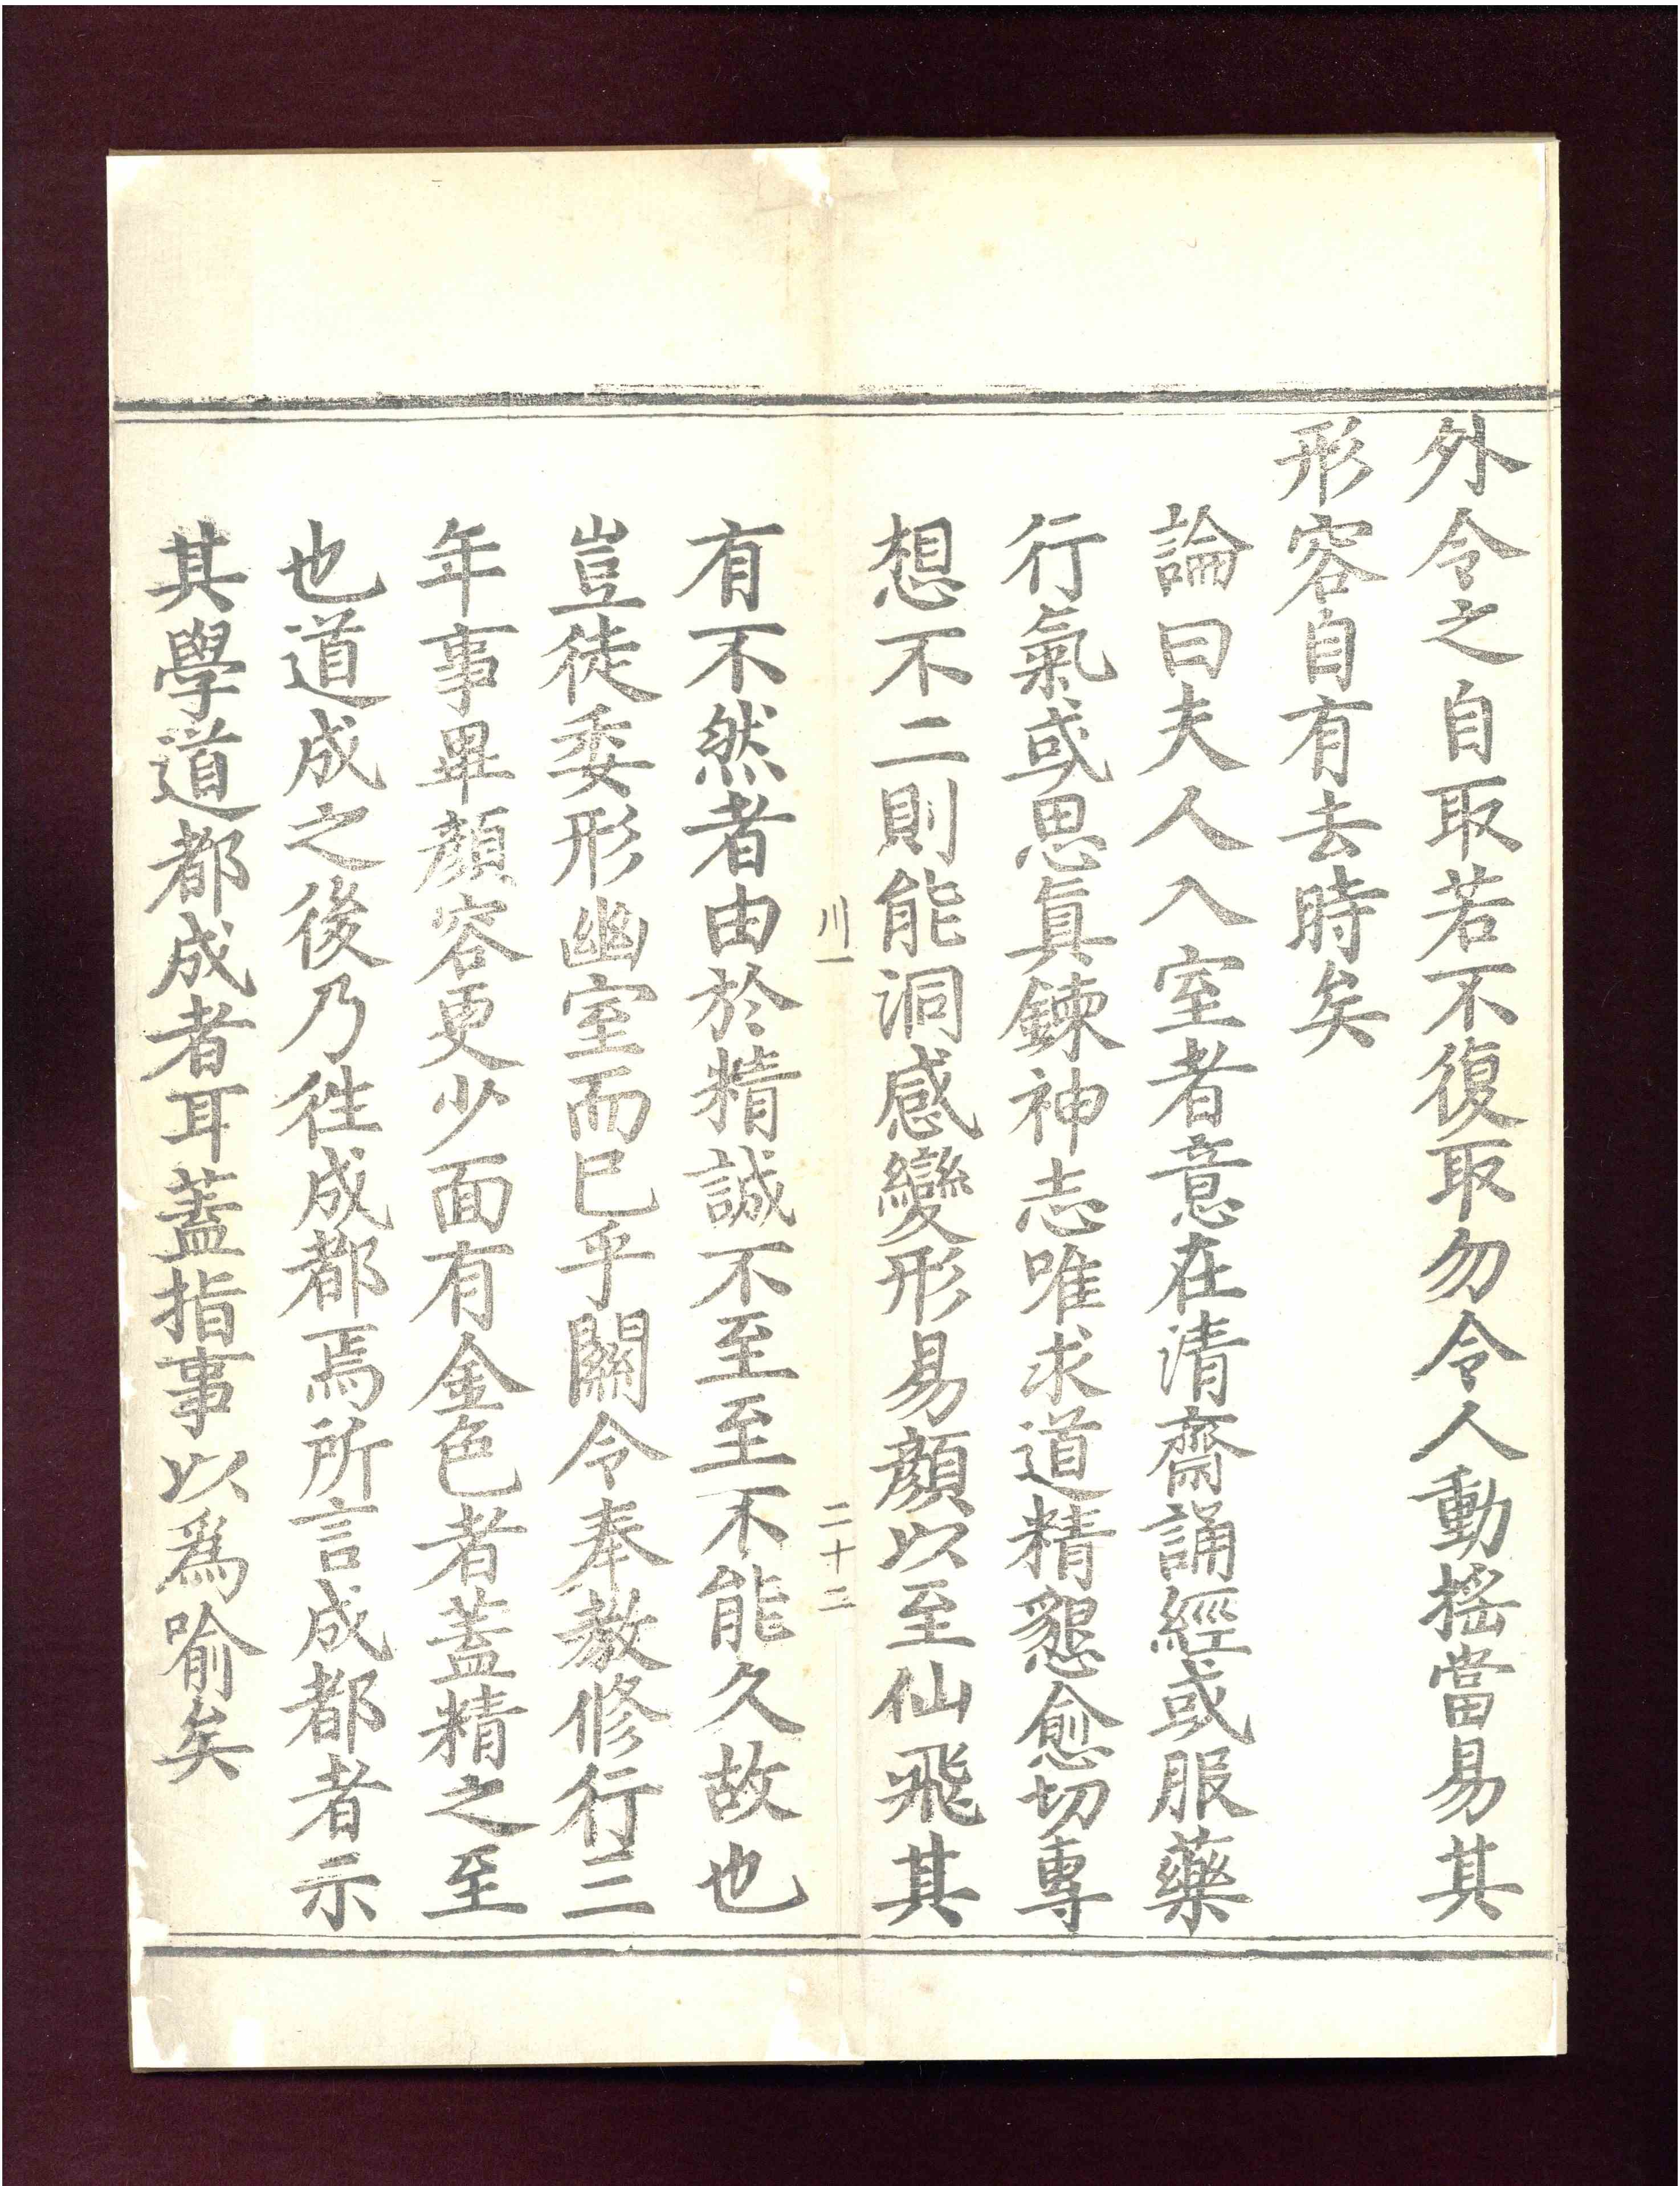 外令之自取若不復取勿令人動揺當易其
形容自有去時矣
論曰夫人入室者意在清齋誦經或服藥
行氣或思真鍊神志唯求道精懇愈切專
想不二則能洞感變形易顔以至仙飛其
川一 二十二
有不然者由於精誠不至至不能久故也
豈徒委形幽室而巳乎關令奉教修行三
年事畢顔容更少面有金色者蓋精之至
也道成之後乃徃成都焉所言成都者示
其學道都成者耳蓋指事以爲喻矣